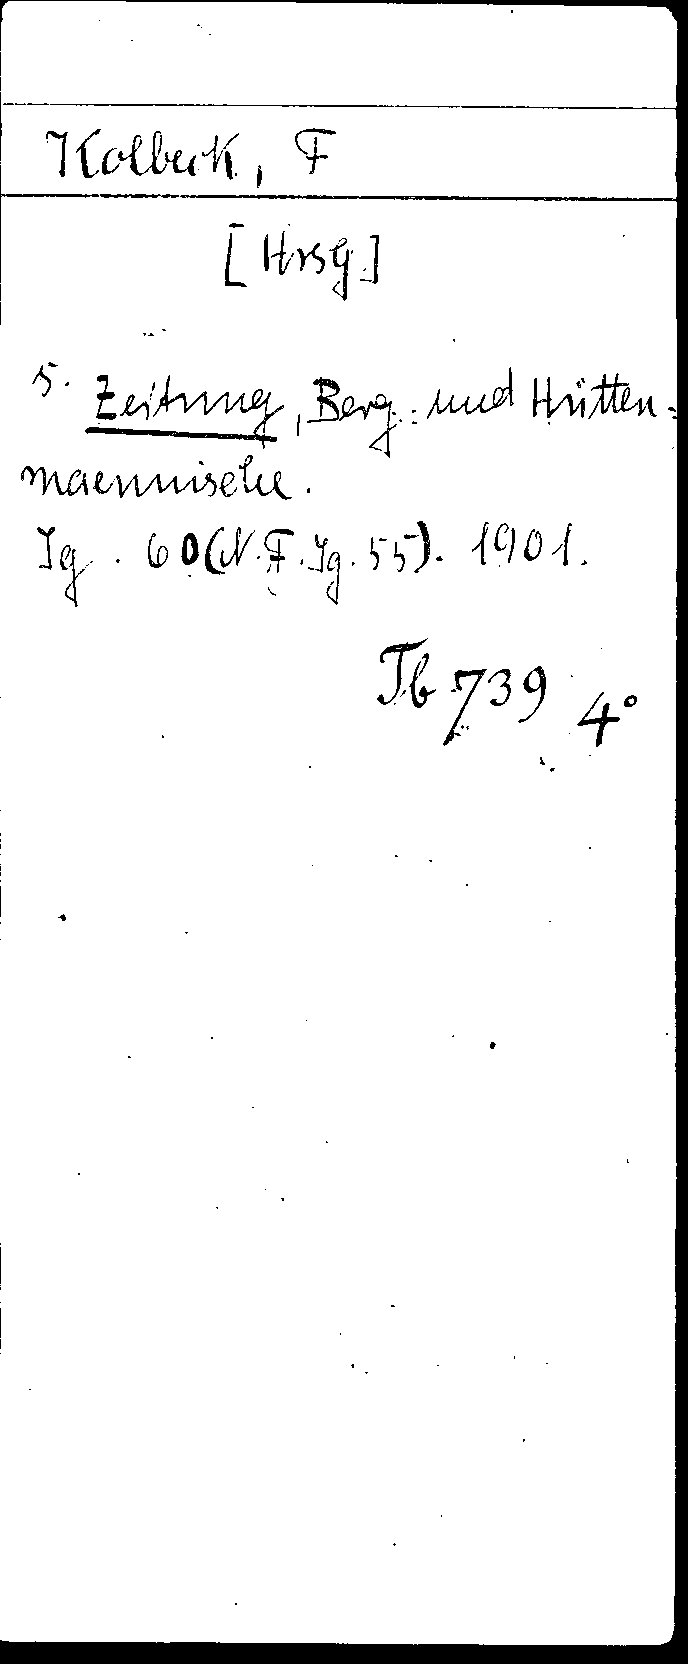 Kolbeck, F
[Hrsg.]
s. Zeitung, Berg- und Hütten=
maennische.
Jg. 60(N.F.Jg.55). 1901.
Tb 739 4°